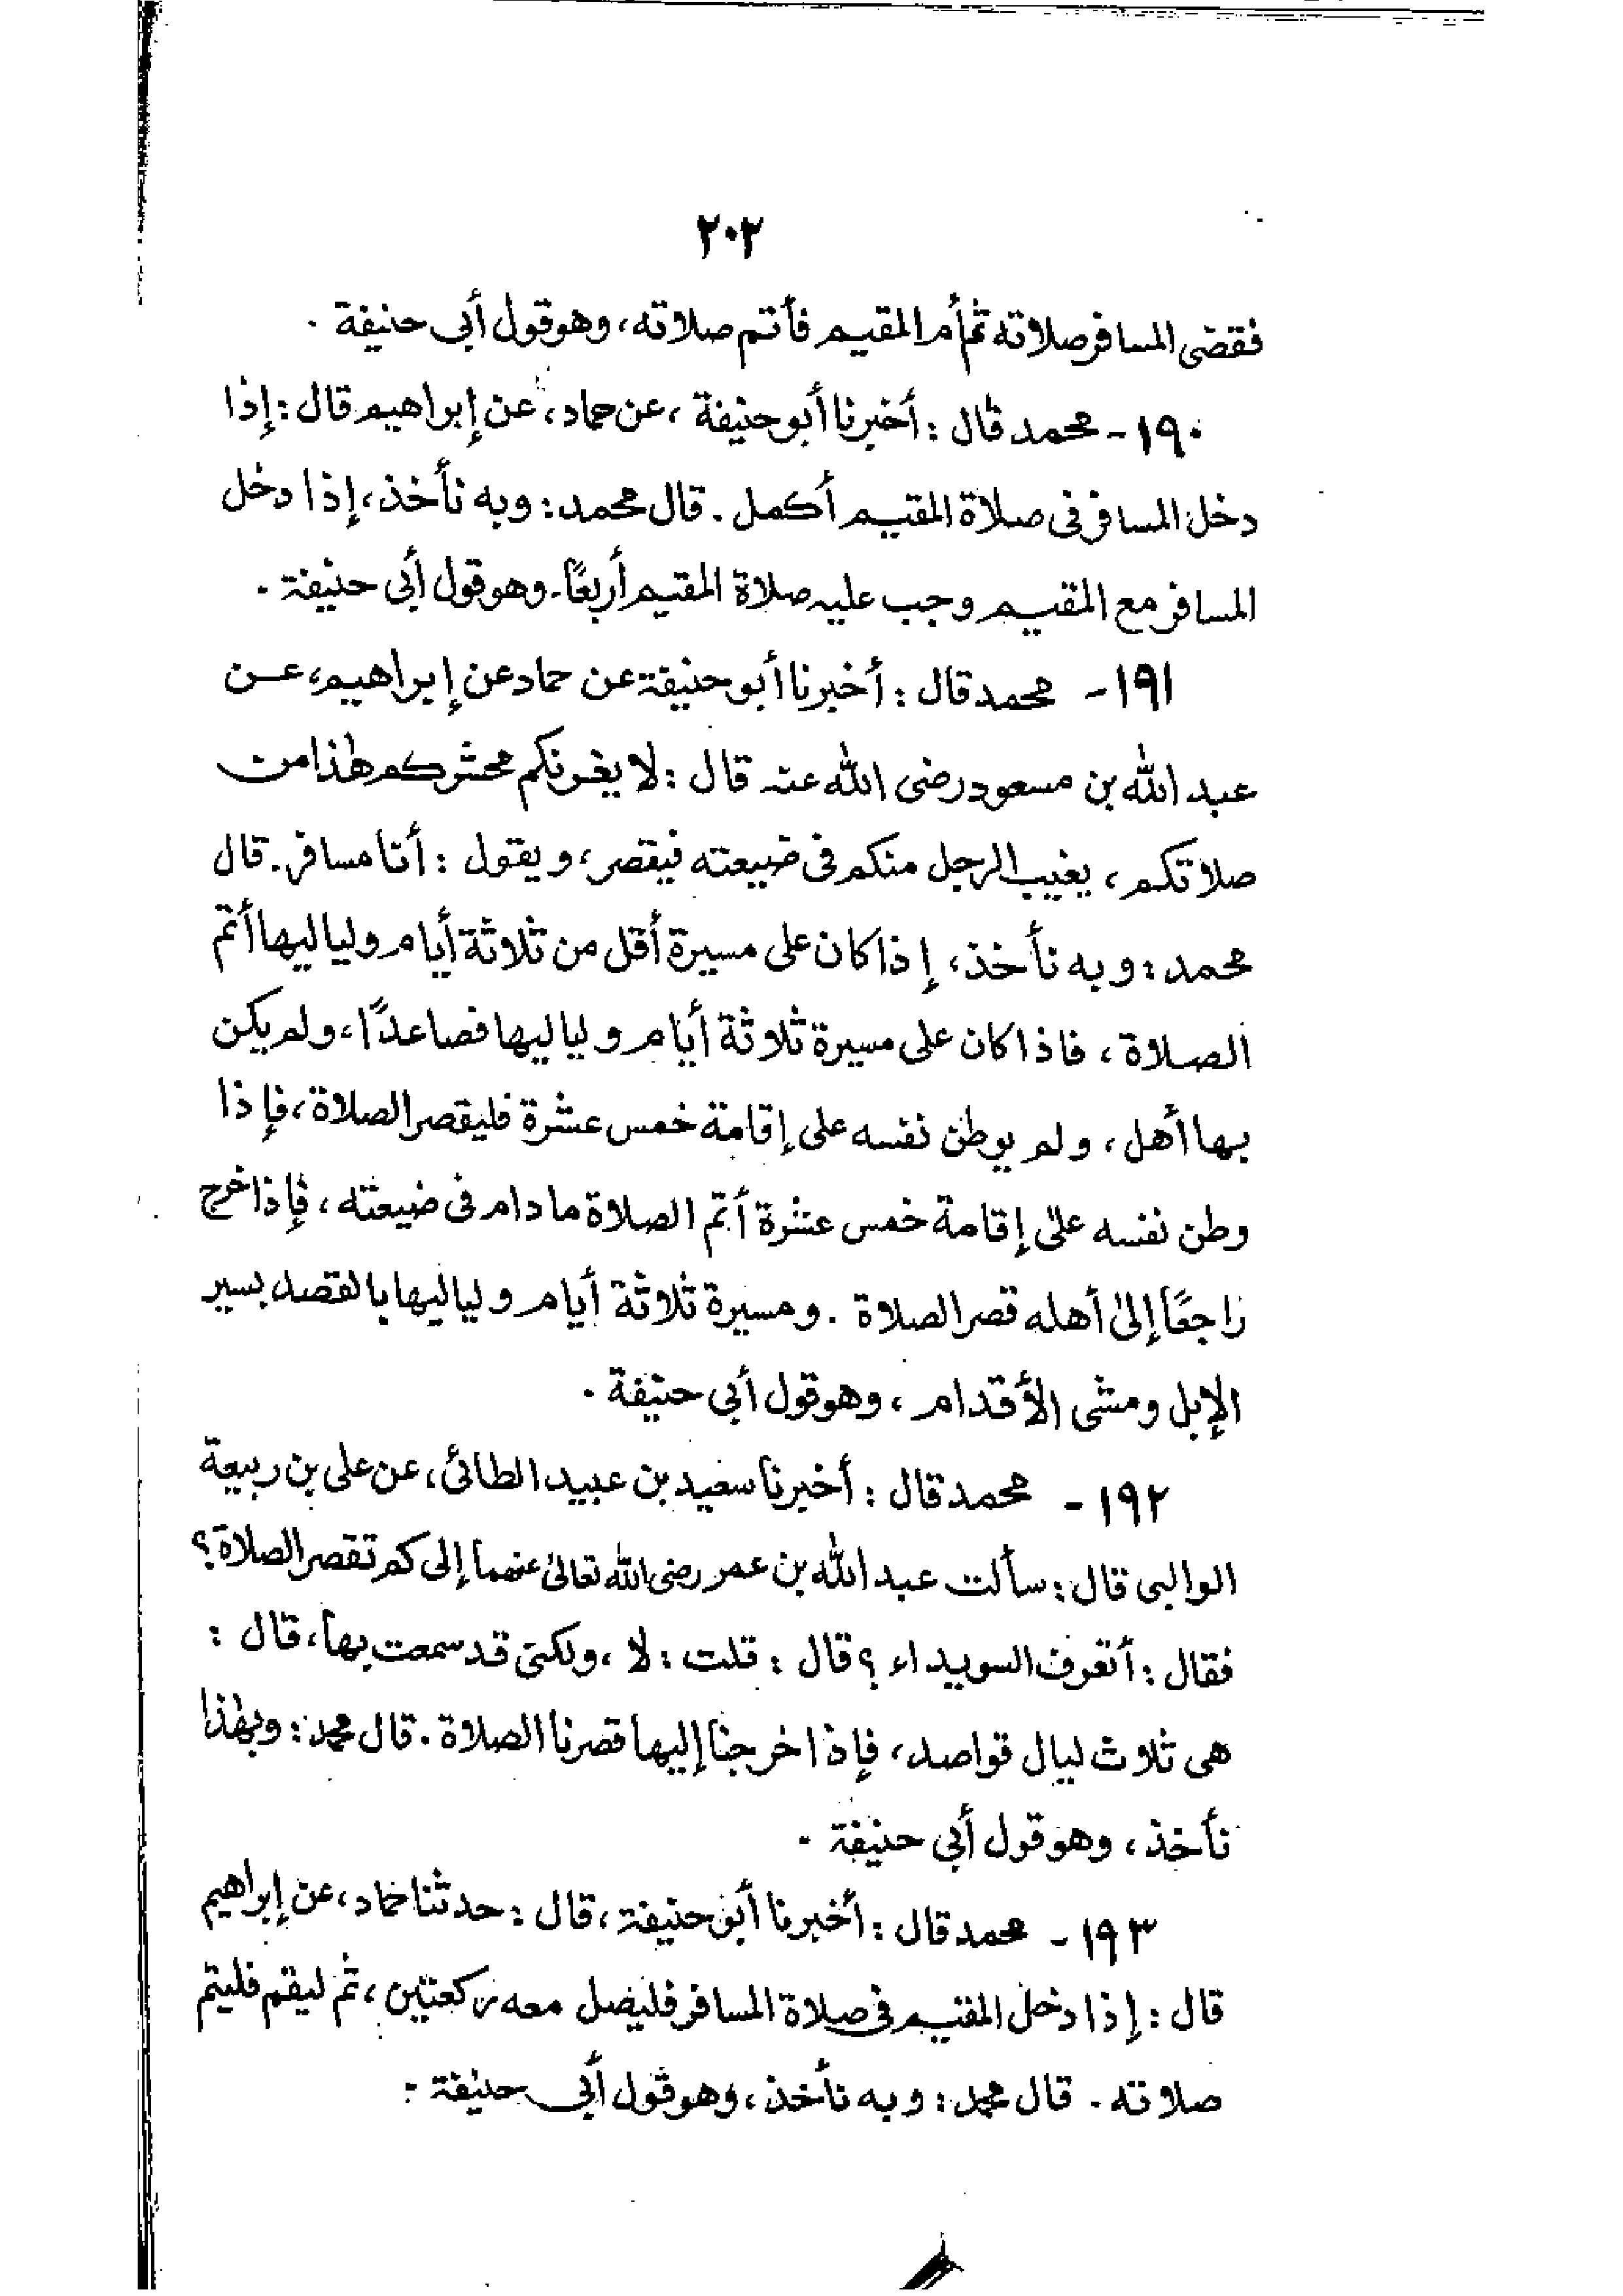 ٢٠٢
فقضى المسافر صلاته ثم أم المقيم فأتم صلاته، وهو قول أبي حنيفة .
١٩٠- محمد قال : أخبرنا أبو حنيفة ، عن حماد، عن إبراهيم قال : إذا
دخل المسافر فى صلاة المقيم أكمل . قال محمد : وبه نأخذ، إذا دخل
المسافر مع المقيم وجب عليه صلاة المقيم أربعًا. وهو قول أبى حنيفة .
١٩١- محمد قال : أخبرنا أبو حنيفة عن حماد عن إبراهيم، عن
عبد الله بن مسعود رضى الله عنه قال : لا يغرنكم محشركم هٰذا من
صلاتكم ، يغيب الرجل منكم فى ضيعته فيقصر، ويقول : أنا مسافر . قال
محمد : وبه نأخذ، إذا كان على مسيرة أقل من ثلاثة أيام ولياليها أتم
الصلاة ، فاذا كان على مسيرة ثلاثة أيام ولياليها فصاعدًا، ولم يكن
بها أهل ، ولم يوطن نفسه على إقامة خمس عشرة فليقصر الصلاة ، فإذا
وطن نفسه على إقامة خمس عشرة أتم الصلاة ما دام فى ضيعته ، فإذا خرج
راجعًا إلىٰ أهله قصر الصلاة . ومسيرة ثلاثة أيام ولياليها بالقصد بسير
الإبل ومشى الأقدام ، وهو قول أبى حنيفة .
١٩٢ - محمد قال : أخبرنا سعيد بن عبيد الطائى ، عن على بن ربيعة
الوالبى قال : سألت عبد الله بن عمر رضى الله تعالىٰ عنهما إلى كم تقصر الصلاة ؟
فقال : أتعرف السويداء ؟ قال : قلت : لا ، ولكنى قد سمعت بها، قال :
هى ثلاث ليال قواصد ، فإذا خرجنا إليها قصرنا الصلاة . قال محمد : وبهٰذا
نأخذ ، وهو قول أبي حنيفة .
١٩٣ - محمد قال : أخبرنا أبو حنيفة ، قال : حدثنا حماد ، عن إبراهيم
قال : إذا دخل المقيم فى صلاة المسافر فليصل معه ركعتين ، ثم ليقم فليتم
صلاته . قال محمد : وبه نأخذ ، وهو قول أبي حنيفة .